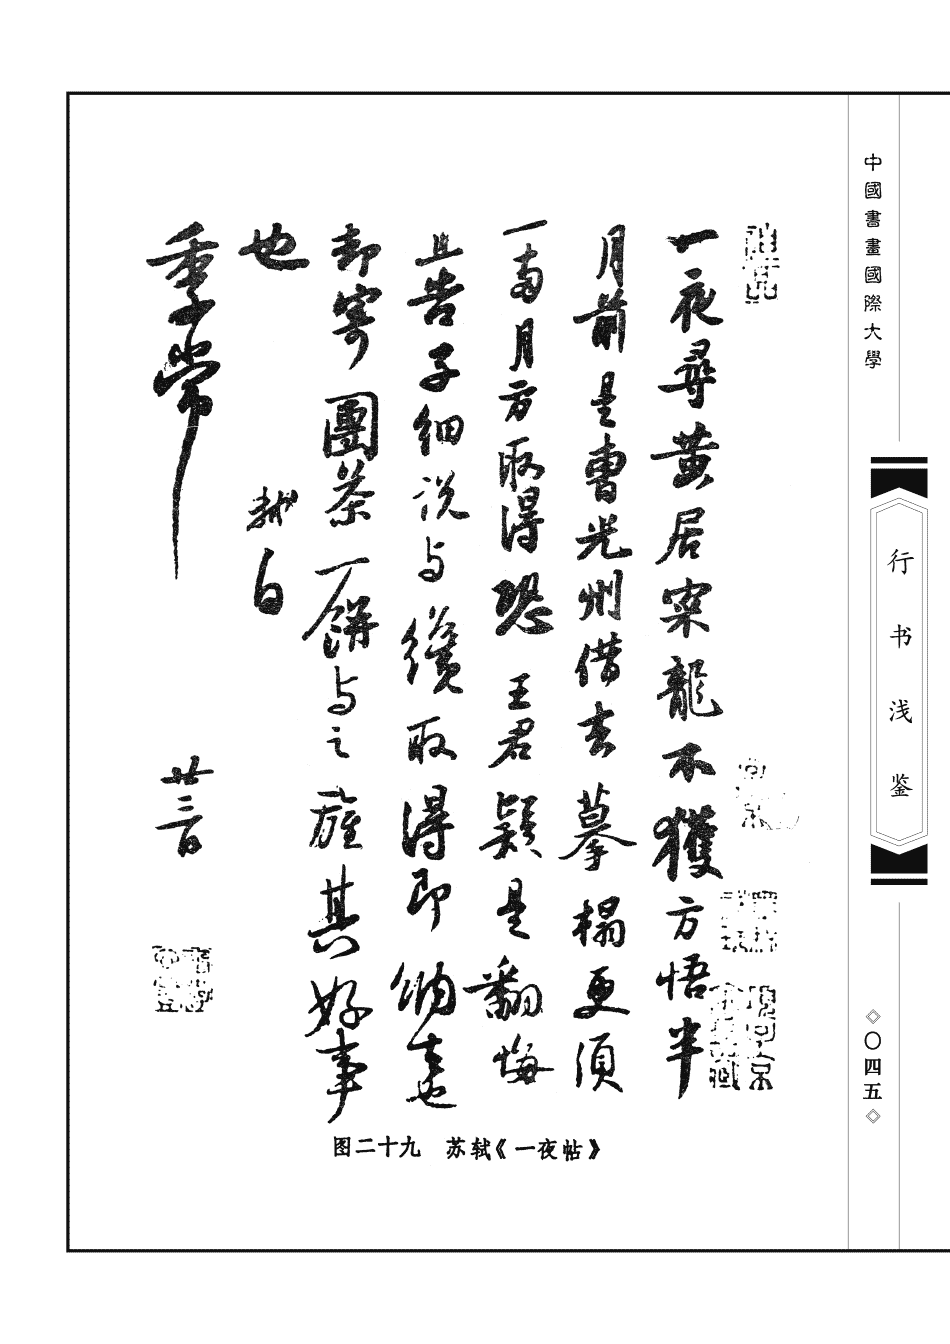 中國書畫國際大學
行书浅鉴
〇四五
一夜尋黄居寀龍不獲方悟半
月前是曹光州借去摹搨更須
一兩月方取得恐王君疑是翻悔
且告子細説与纔取得即納去也
却寄團茶一餅与之旌其好事
也
軾白
季常
廿三日
图二十九 苏轼《一夜帖》